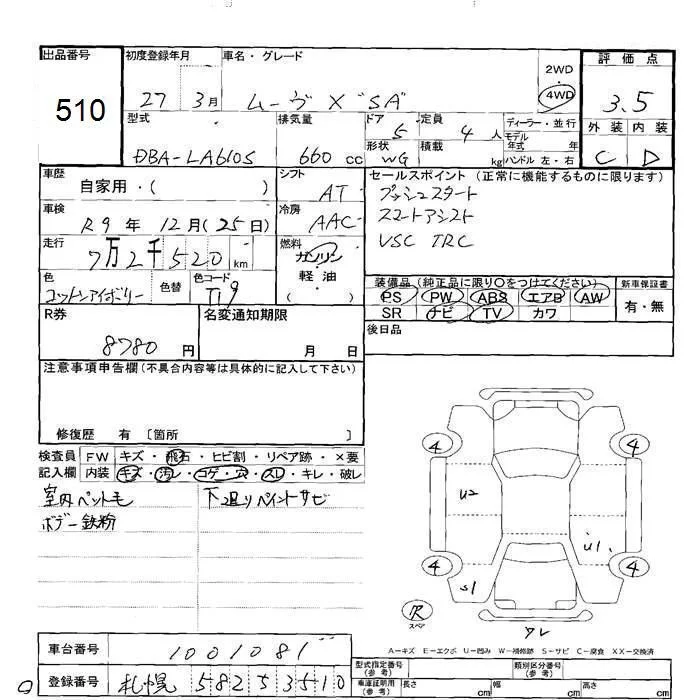 出品番号
510
初度登録年月
27 3月
車名・グレード
ムーヴ X "SA"
2WD
・
4WD
評価点
3.5
外装 内装
C D
型式
DBA-LA610S
排気量
660 cc
ドア
5
定員
4 人
形状
WG
積載
kg
ディーラー・並行
モデル
年式 年
ハンドル 左・右
車歴
自家用・( )
シフト
AT
車検
R9 年 12月(25日)
冷房
AAC
走行
7万2千520 km
燃料
ガソリン
・
軽油
( )
色
コットンアイボリー
色替
色コード
T19
R券
8780 円
名変通知期限
月 日
セールスポイント (正常に機能するものに限ります)
プッシュスタート
スマートアシスト
VSC TRC
装備品(純正品に限り○をつけてください)
PS PW ABS エアB AW
SR ナビ TV カワ
新車保証書
有・無
後日品
注意事項申告欄(不具合内容等は具体的に記入して下さい)
修復歴 有 〔箇所 〕
検査員 FW キズ・飛石・ヒビ割・リペア跡・×要
記入欄 内装 キズ・汚レ・コゲ・穴・スレ・キレ・破レ
室内ペット毛
ボデー鉄粉
下廻りペイントサビ
4 4
U2
U1
4 4
S1
スペア
ワレ
A－キズ E－エクボ U－凹み W－補修跡 S－サビ C－腐食 XX－交換済
車台番号
1001081
登録番号
札幌 582 53510
型式指定番号
(参考)
類別区分番号
(参考)
車庫証明用
(参考)
長さ cm 幅 cm 高さ cm